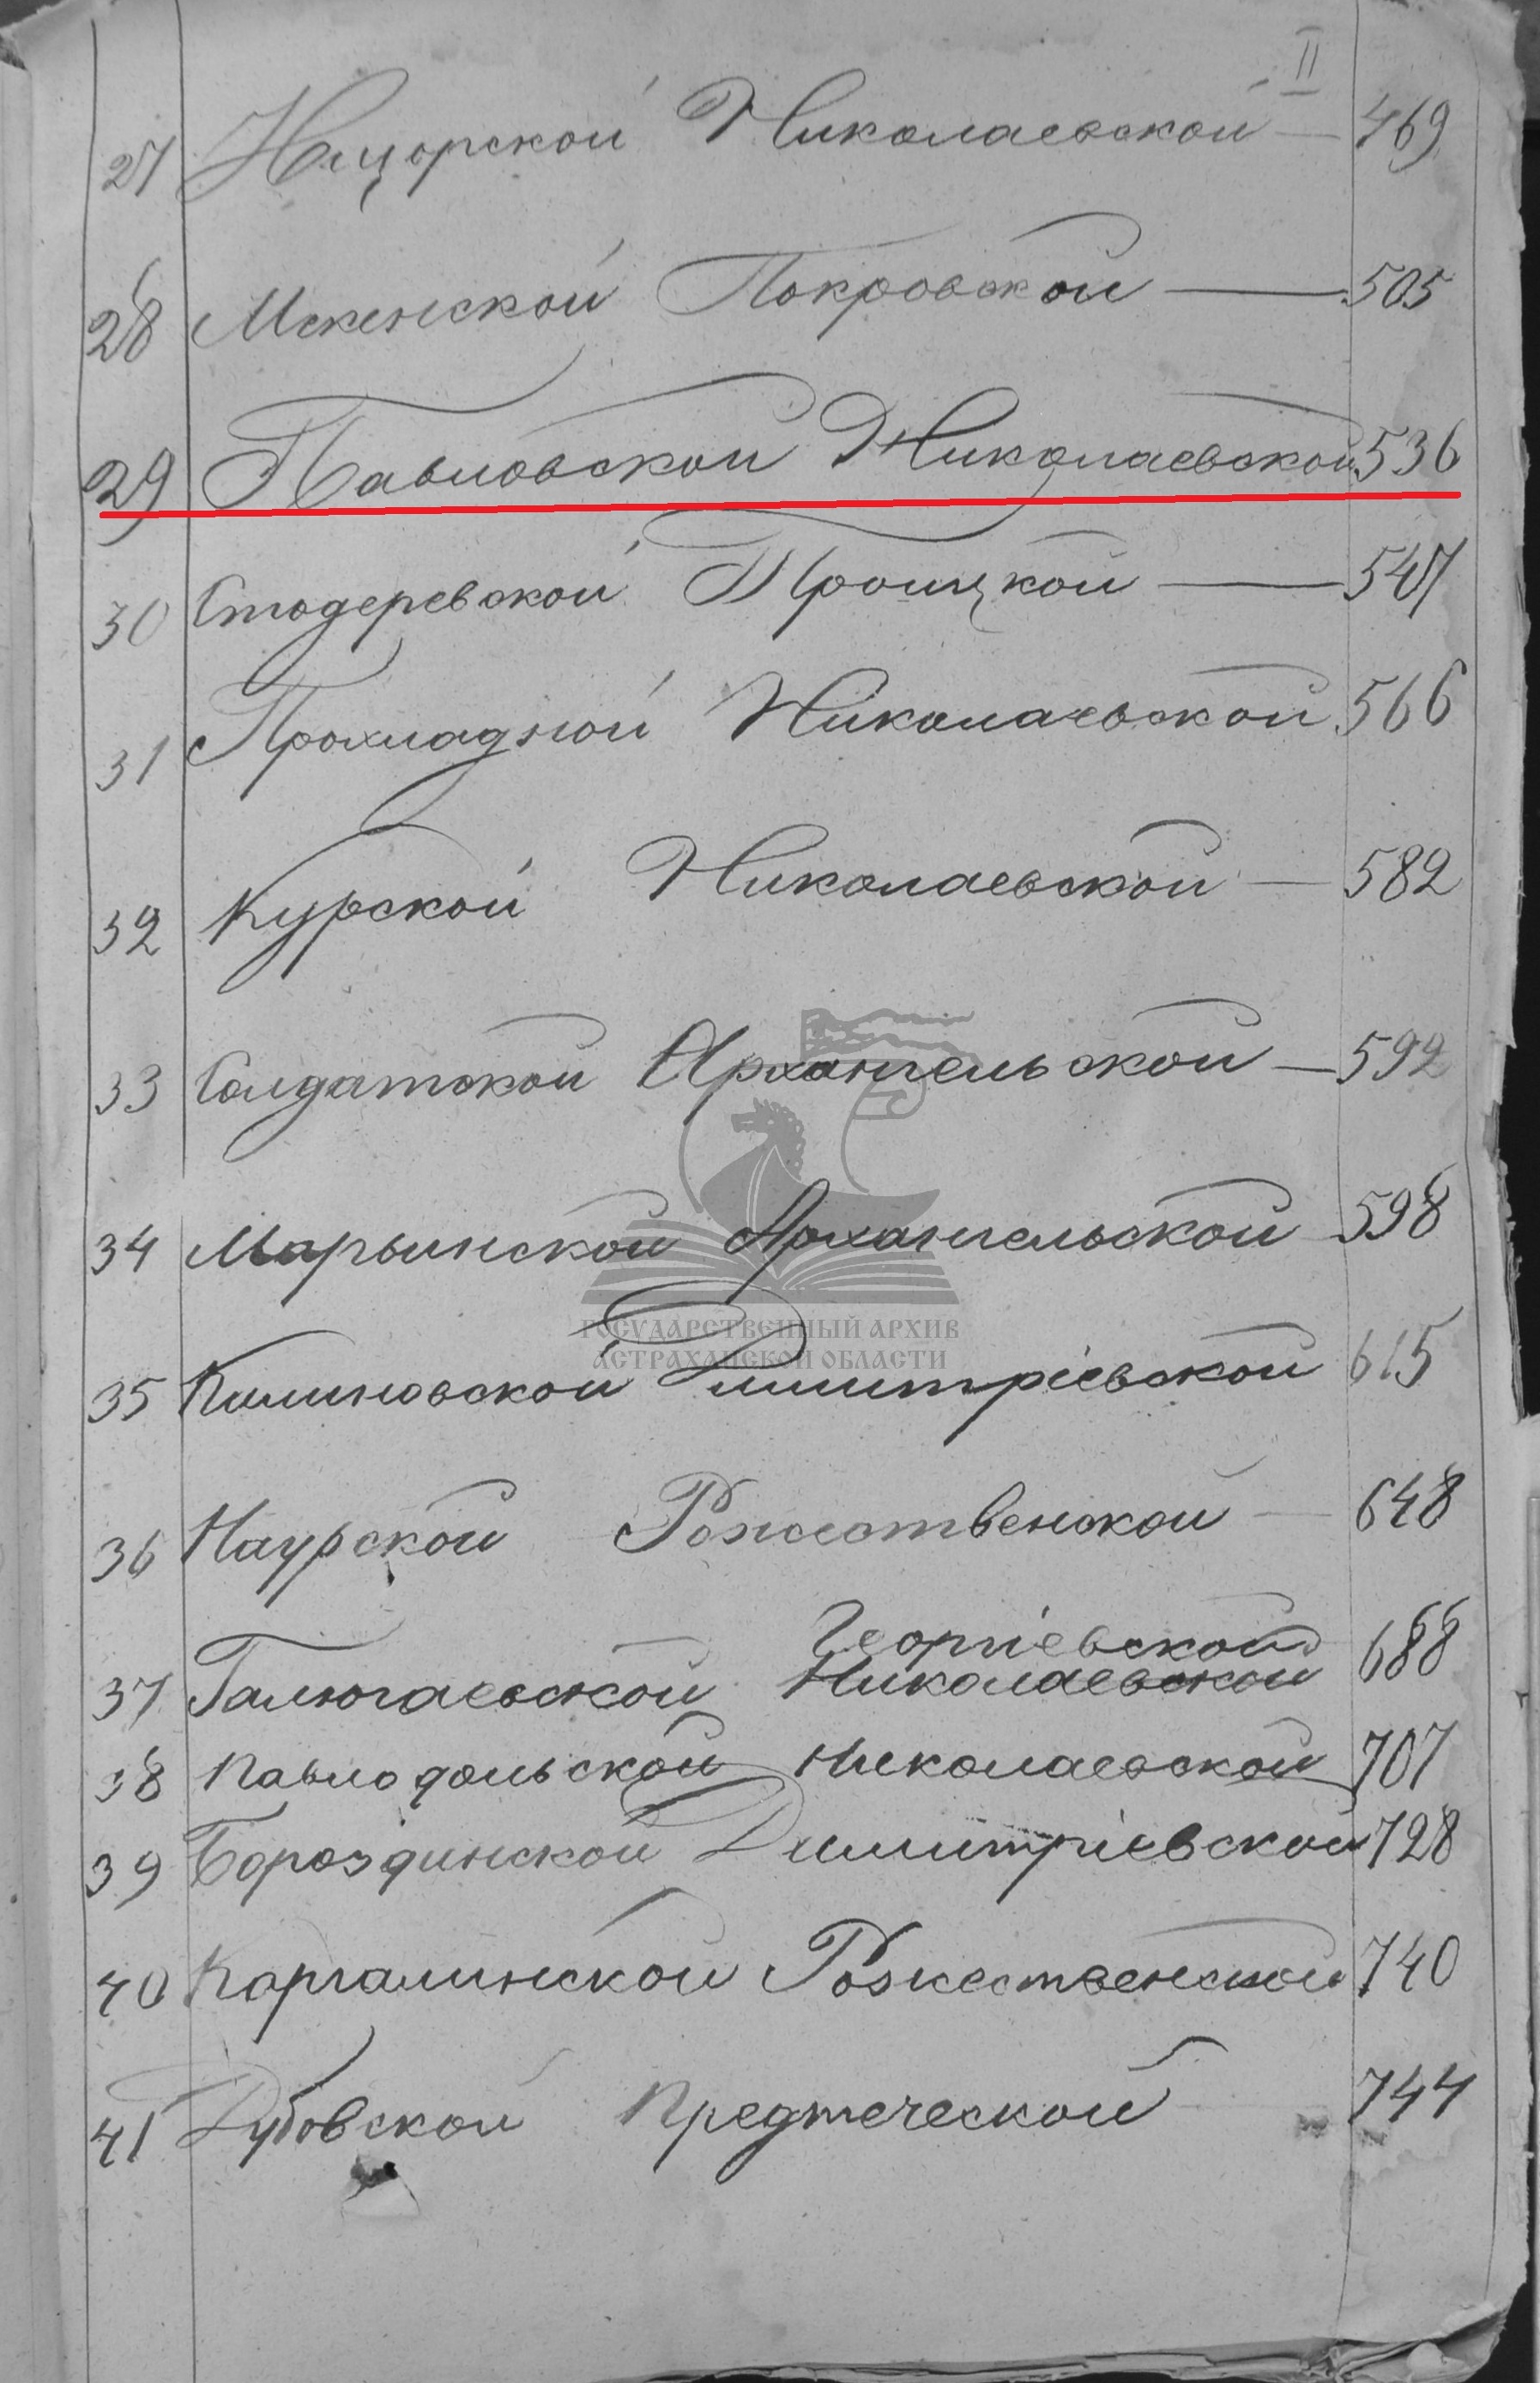 II
27 Ищорской Николаевской — 469
28 Мекенской Покровской — 505
29 Павловской Николаевской 536
30 Стодеревской Троицкой — 547
31 Прохладной Николаевской 566
32 Курской Николаевской — 582
33 Солдатской Архангельской — 592
34 Марьинской Архангельской — 598
35 Калиновской Димитріевской 615
36 Наурской Рожественской — 648
Георгіевской
37 Галюгаевской Николаевской 688
38 Павлодольской Николаевской 707
39 Бороздинской Димитріевской 728
40 Каргалинской Рожественской 740
41 Дубовской Предтеческой 744
ГОСУДАРСТВЕННЫЙ АРХИВ
АСТРАХАНСКОЙ ОБЛАСТИ